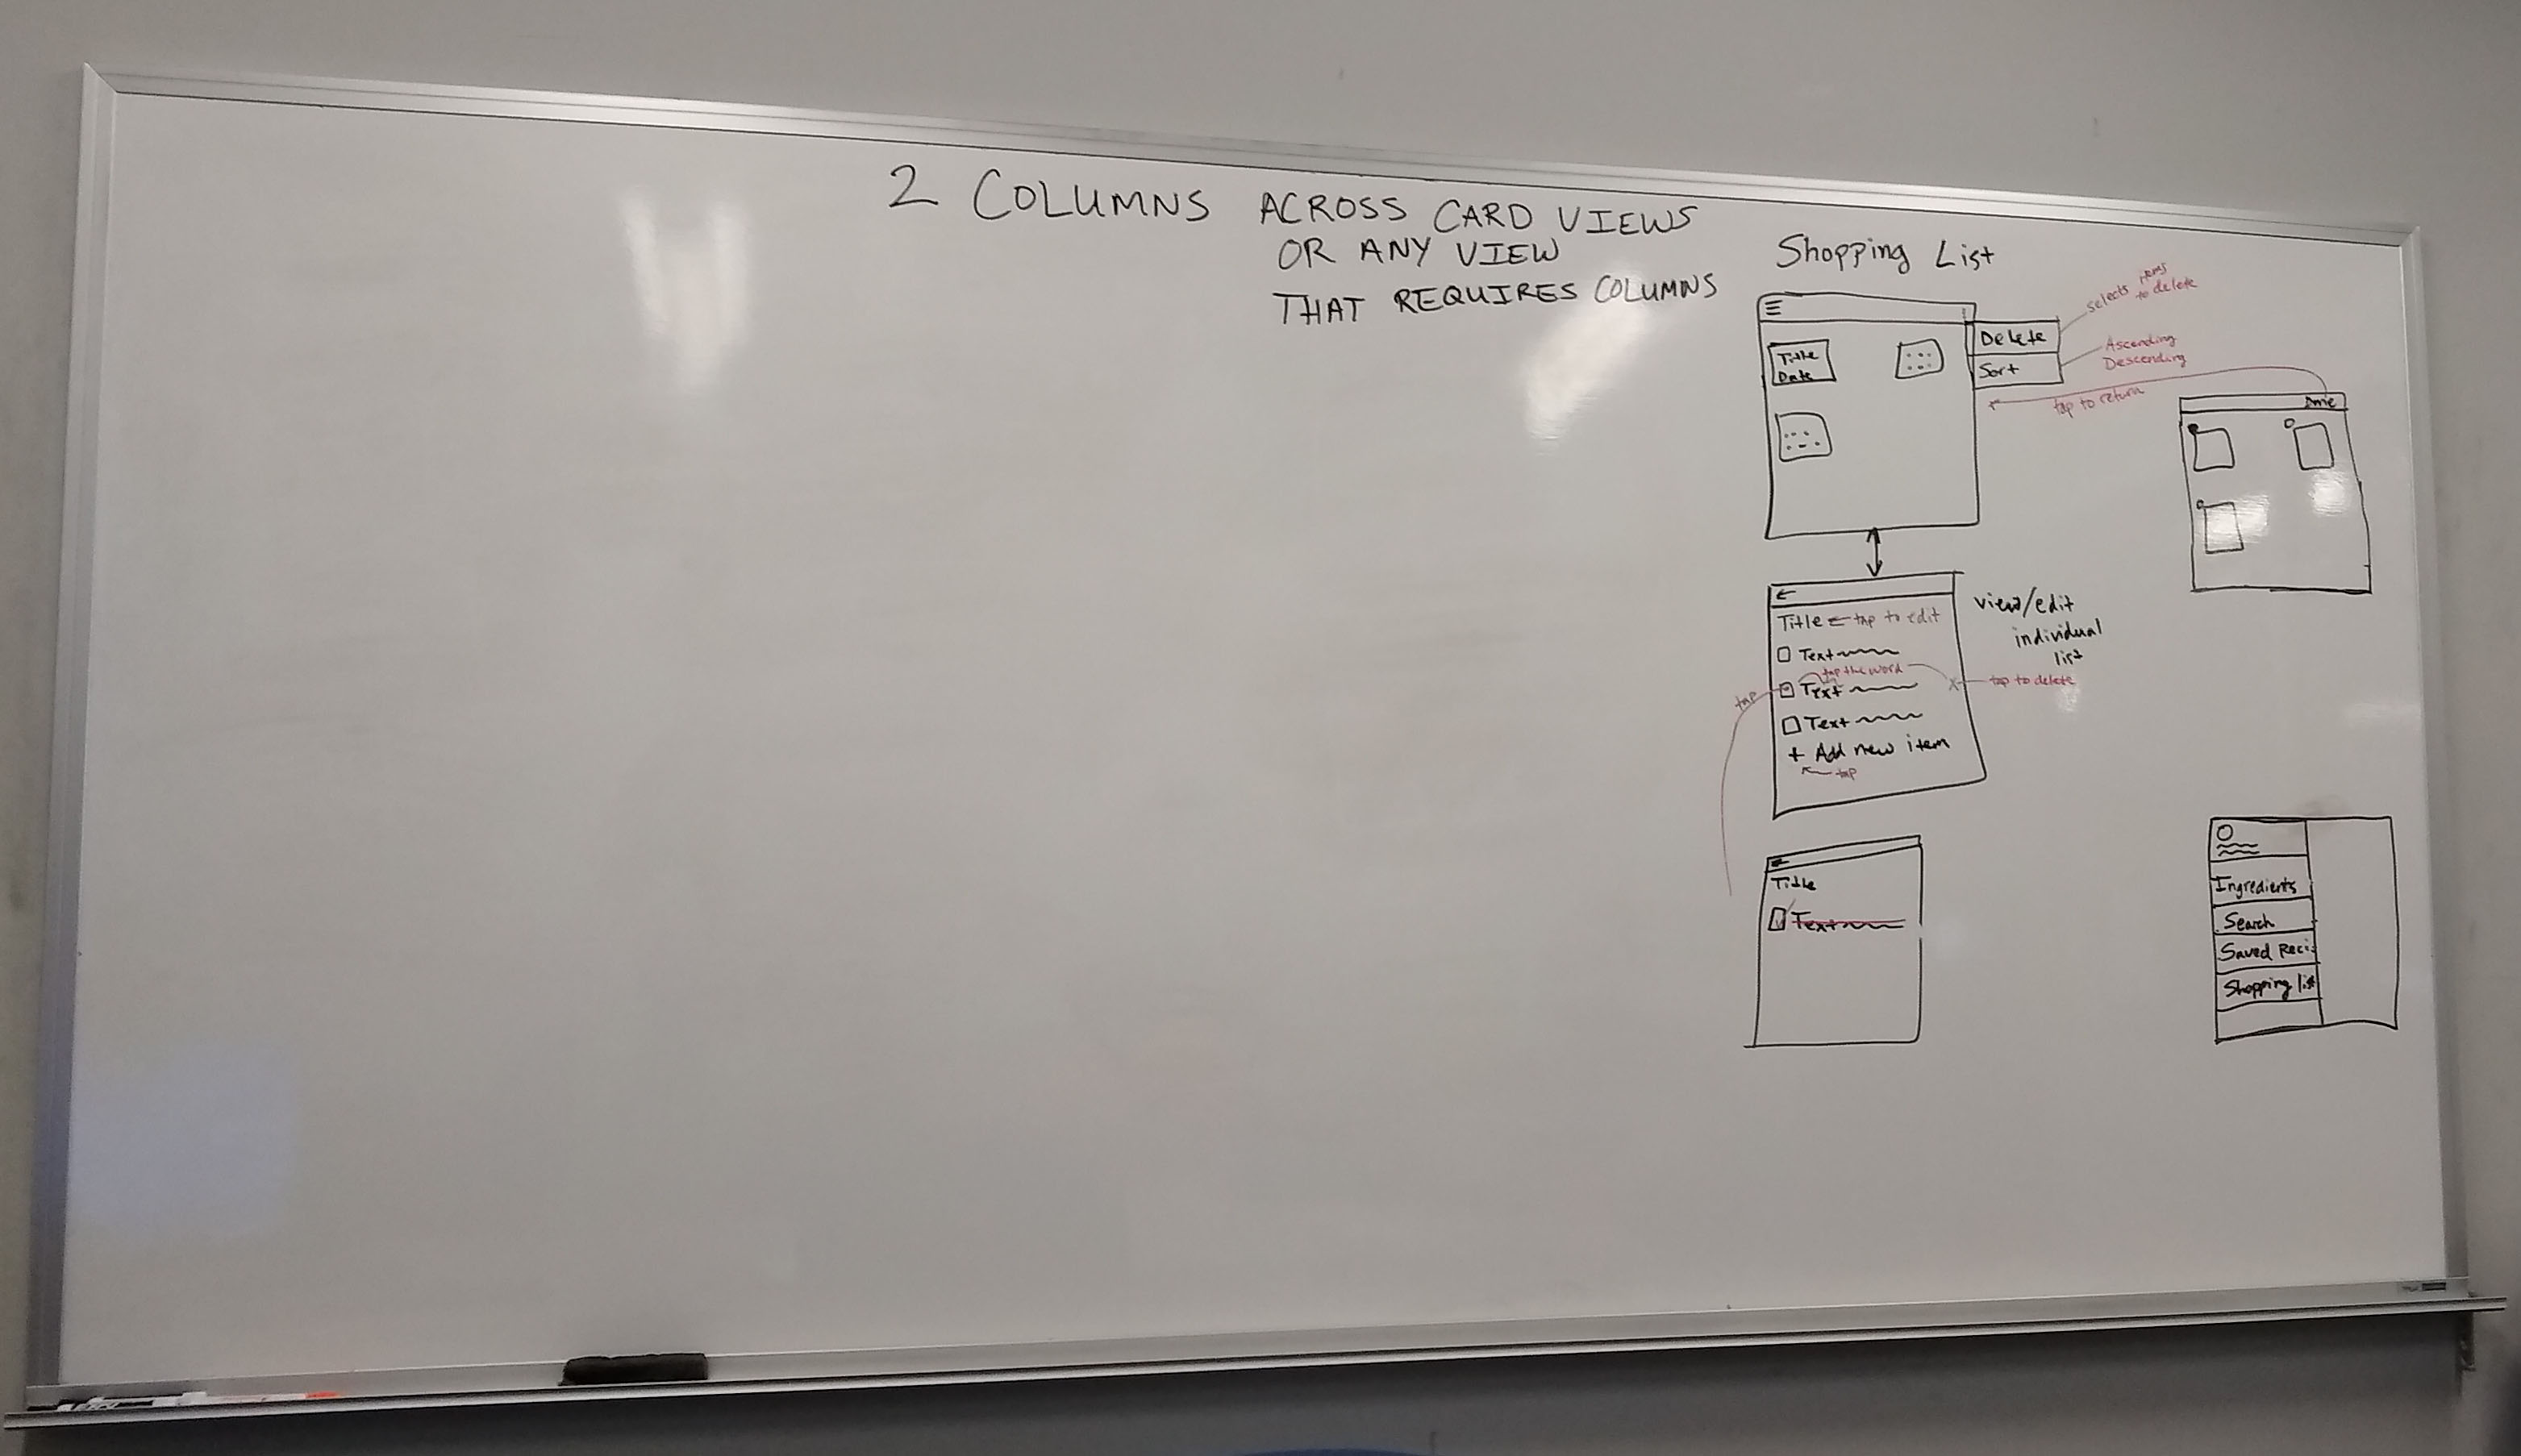 2 COLUMNS ACROSS CARD VIEWS
OR ANY VIEW
THAT REQUIRES COLUMNS
Shopping List
selects items
to delete
Delete
Sort
Ascending
Descending
Title
Date
tap to return
Done
Title ← tap to edit
Text
tap the word
tap
Text
X tap to delete
Text
+ Add new item
tap
view/edit
individual
list
Title
Text
Ingredients
Search
Saved Reci
Shopping list